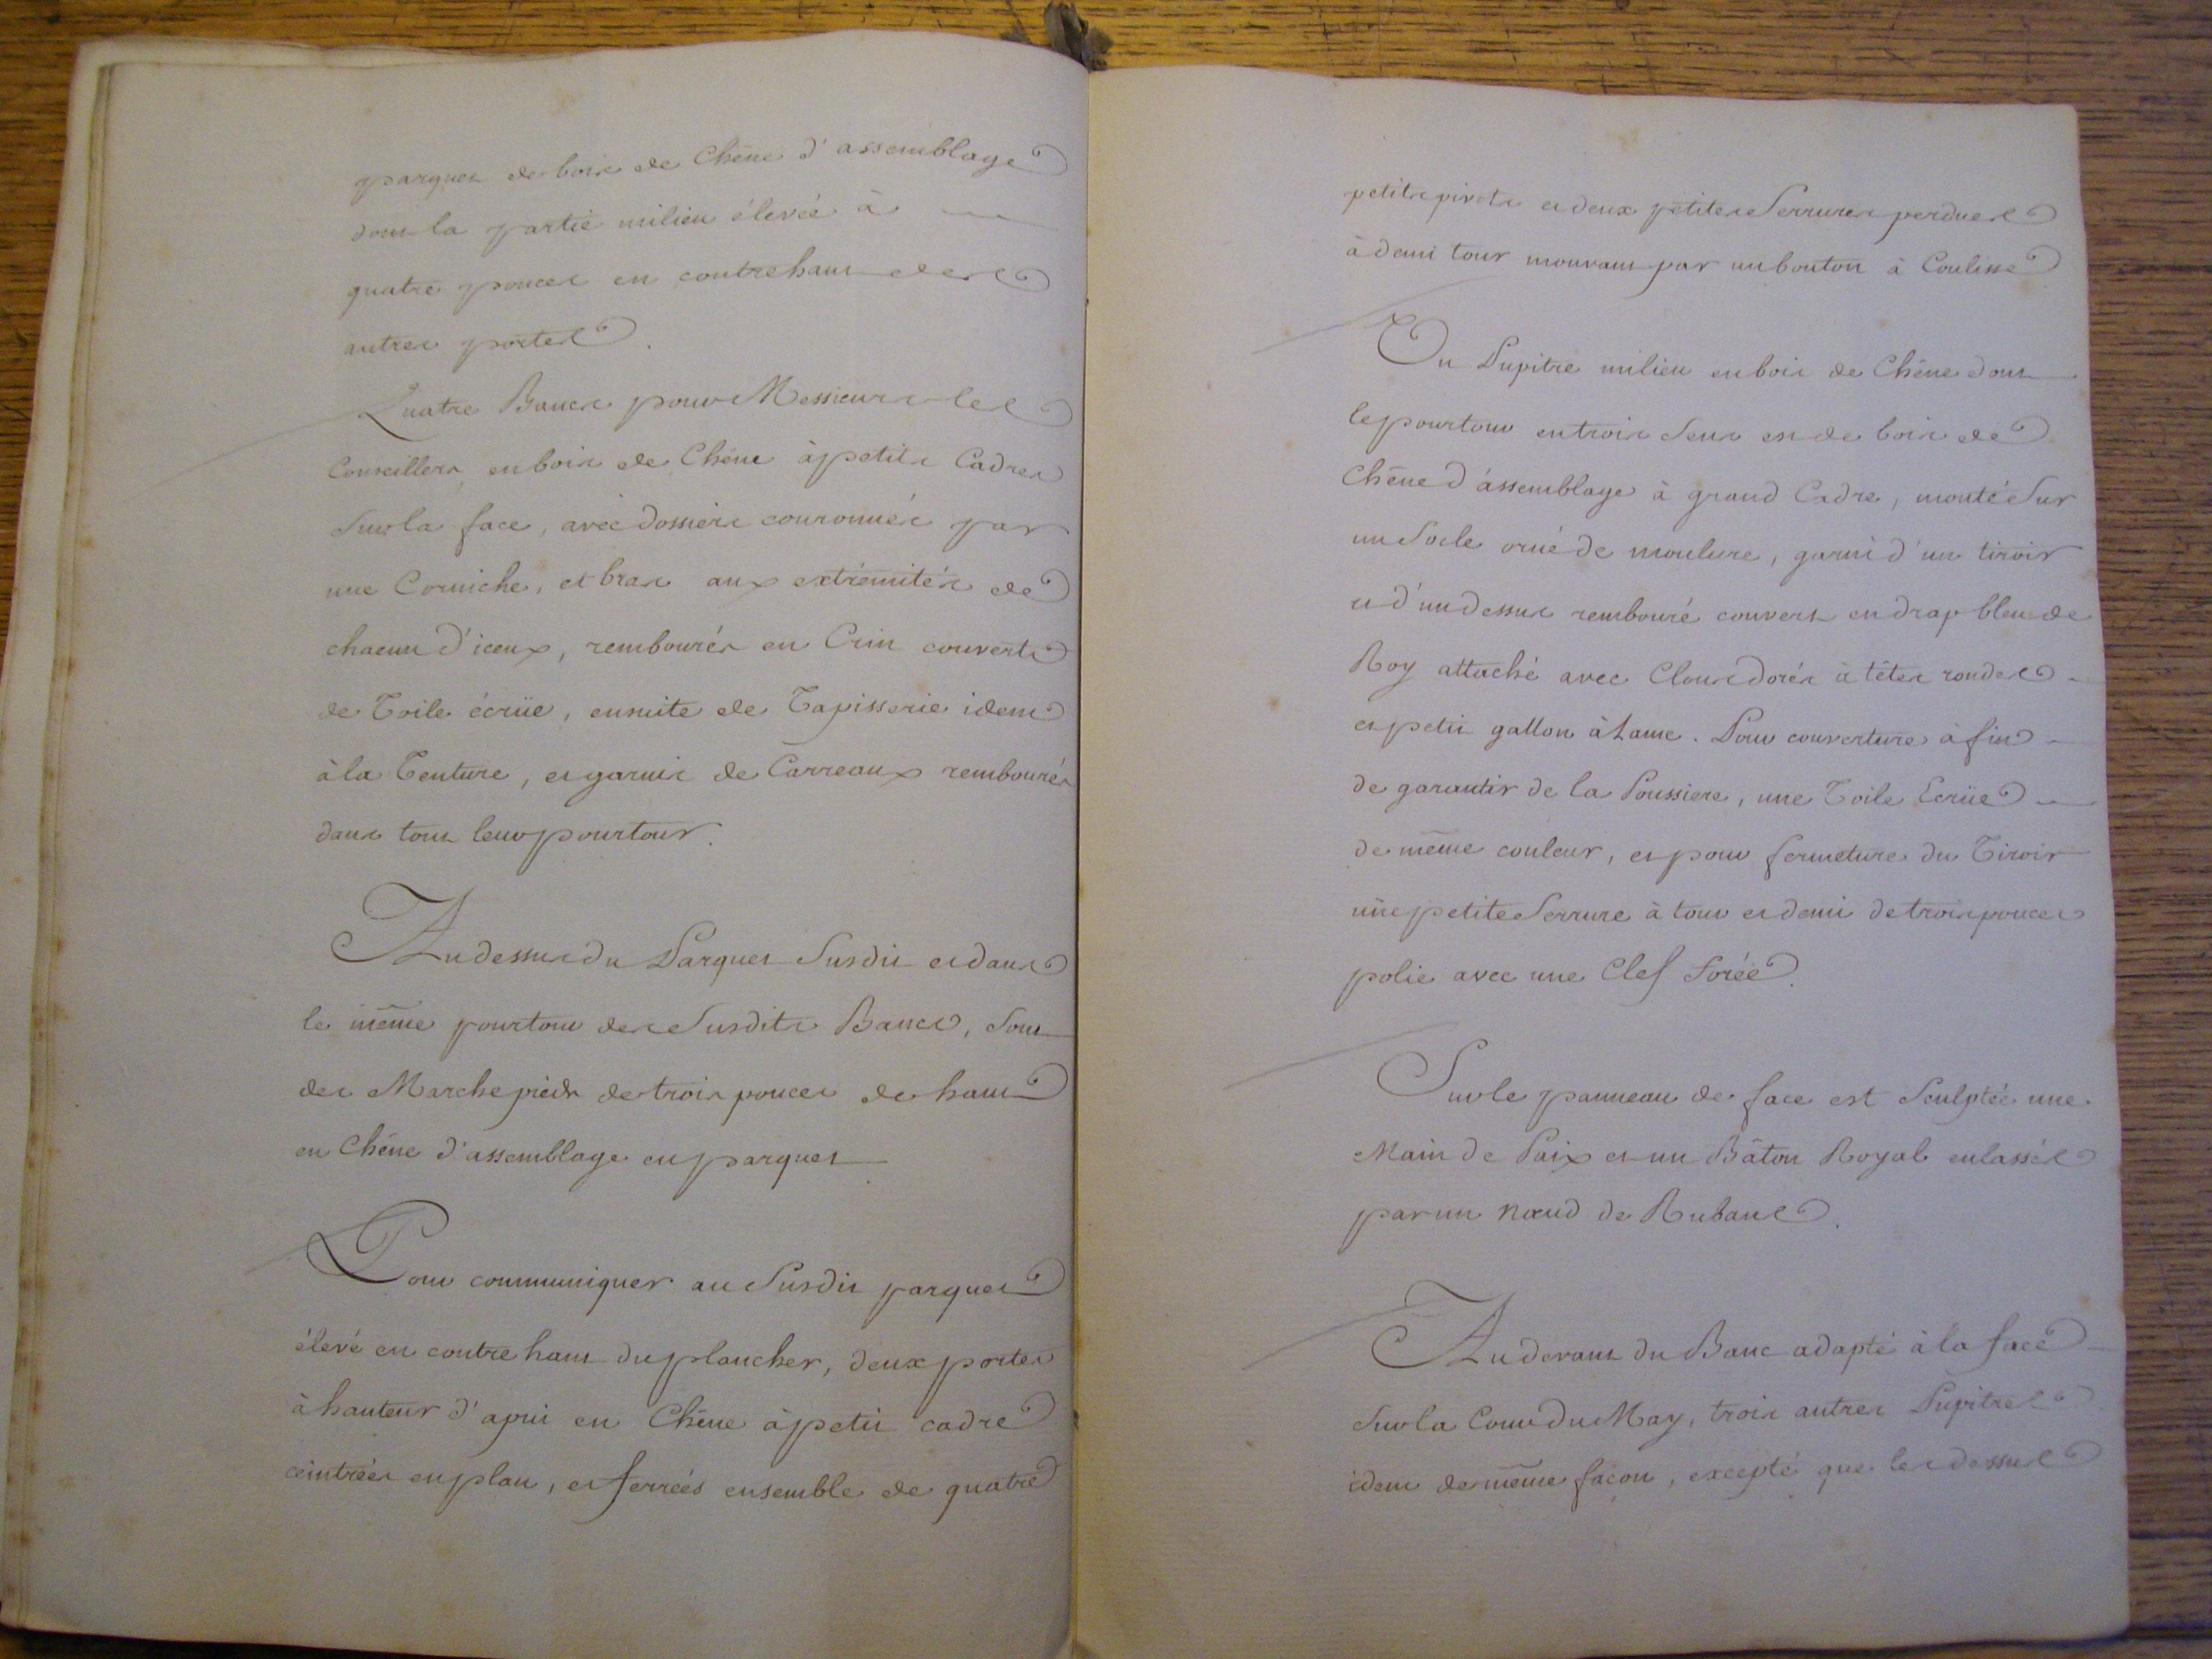 parquet de bois de Chêne d'assemblage
dont la partie milieu élevée à
quatre pouces en contrehaut des
autres portes.
Quatre Bancs pour Messieurs les
Conseillers en bois de Chêne à petits Cadres
Sur la face, avec dossiers couronnés par
une Corniche, et bras aux extrémités de
chacun d'iceux, rembourés en Crin couverts
de Toile écrüe, ensuite de Tapisserie idem
à la Tenture, et garnis de Carreaux rembourés
dans tout leur pourtour.
Au dessus du Parquet Susdit et dans
le même pourtour des Susdits Bancs, Sont
des Marchepieds de trois pouces de haut
en Chêne d'assemblage en parquet.
Pour communiquer au Susdit parquet
élevé en contre haut du plancher, deux portes
à hauteur d'apui en Chêne à petit cadre
ceintrées en plan, et ferrées ensemble de quatre
petits pivots et deux petites Serrures perdues
à demi tour mouvant par un bouton à Coulisse
Un Pupitre milieu en bois de Chêne dont
le pourtour en trois Sens est de bois de
Chêne d'assemblage à grand Cadre, monté Sur
un Socle orné de moulure, garni d'un tiroir
et d'un dessus rembouré couvert en drap bleu de
Roy attaché avec Clous dorés à têtes rondes
et petit gallon à Lame. Pour couverture à fin
de garantir de la Poussiere, une Toile Ecrüe
de même couleur, et pour fermeture du Tiroir
une petite Serrure à tour et demi de trois pouces
polie avec une Clef forée.
Sur le panneau de face est Sculptée une
Main de Paix et un Bâton Royal enlassés
par un nœud de Rubans.
Au devant du Banc adapté à la face
Sur la Cour du May, trois autres Pupitres
idem de même façon, excepté que les dessus